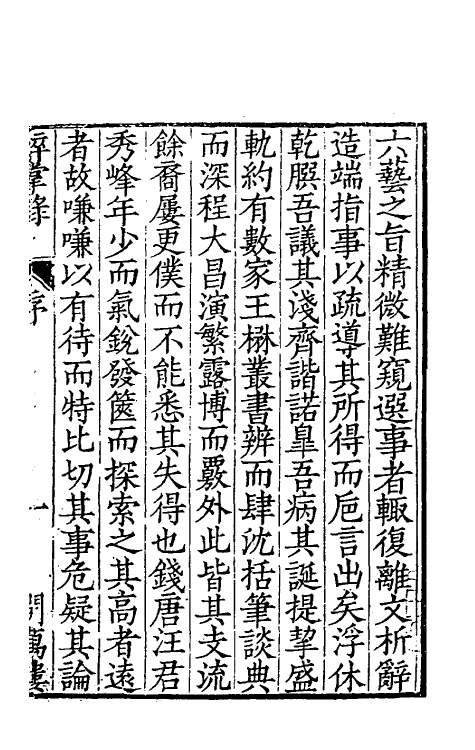 六藝之旨精微難窺選事者輙復離文析辭
造端指事以疏導其所得而巵言出矣浮休
乾䐑吾議其淺齊諧諾臯吾病其誕提挈盛
軌約有數家王楙叢書辨而肆沈括筆談典
而深程大昌演繁露博而覈外此皆其支流
餘裔屢更僕而不能悉其失得也錢唐汪君
秀峰年少而氣銳發篋而探索之其高者遠
者故嗛嗛以有待而特比切其事危疑其論
序
一